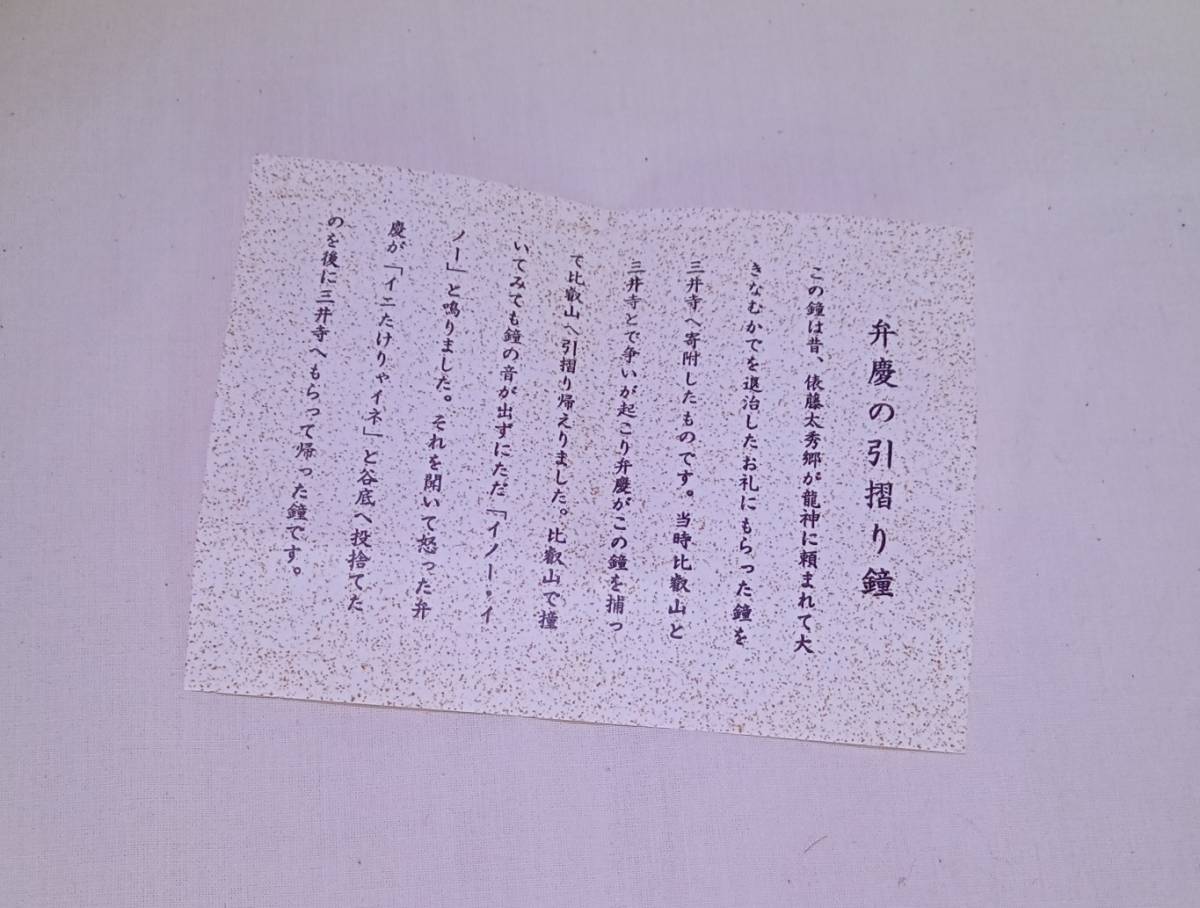 弁慶の引摺り鐘
この鐘は昔、俵藤太秀郷が龍神に頼まれて大
きなむかでを退治したお礼にもらった鐘を
三井寺へ寄附したものです。当時比叡山と
三井寺とで争いが起こり弁慶がこの鐘を捕っ
て比叡山へ引摺り帰えりました。比叡山で撞
いてみても鐘の音が出ずにただ「イノー・イ
ノー」と鳴りました。それを聞いて怒った弁
慶が「イニたけりゃイネ」と谷底へ投捨てた
のを後に三井寺へもらって帰った鐘です。